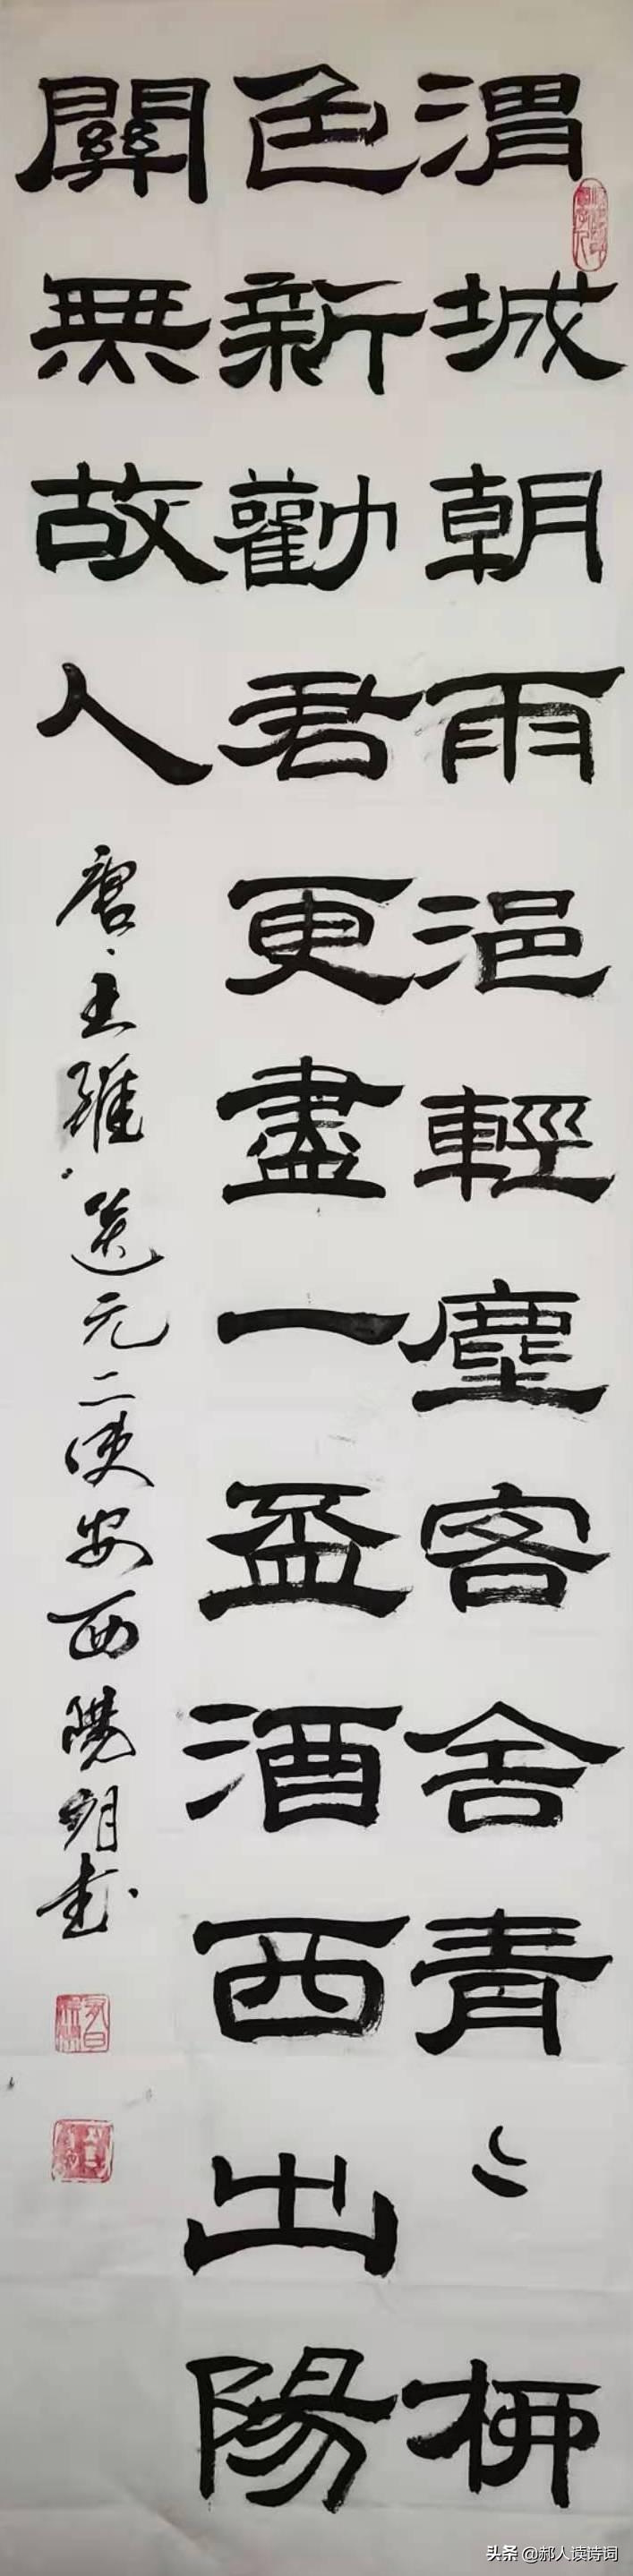 渭城朝雨浥輕塵客舍青〻栁
色新勸君更盡一盃酒西出陽
關無故人
唐王維送元二使安西陽明书
头条 @郝人读诗词